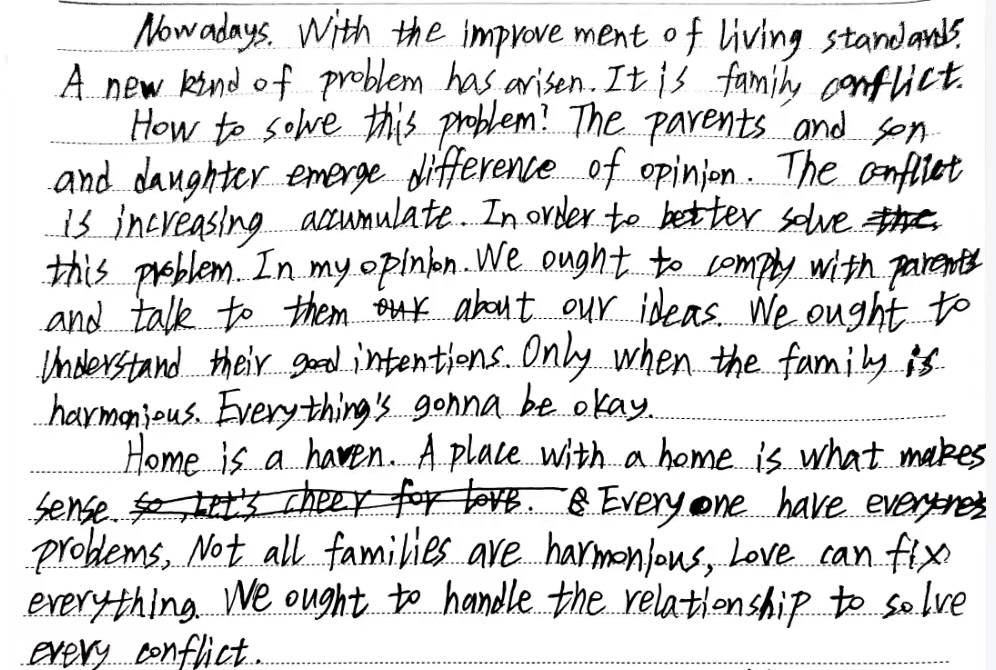 Nowadays. With the improvement of living standards.
A new kind of problem has arisen. It is family conflict.
How to solve this problem? The parents and son
and daughter emerge difference of opinion. The conflict
is increasing accumulate. In order to better solve the
this problem. In my opinion. We ought to comply with parents
and talk to them our about our ideas. We ought to
Understand their good intentions. Only when the family is
harmonious. Everything's gonna be okay.
Home is a haven. A place with a home is what makes
sense. so, Let's cheer for love. Everyone have
problems, Not all families are harmonious, Love can fix
everything. We ought to handle the relationship to solve
every conflict.